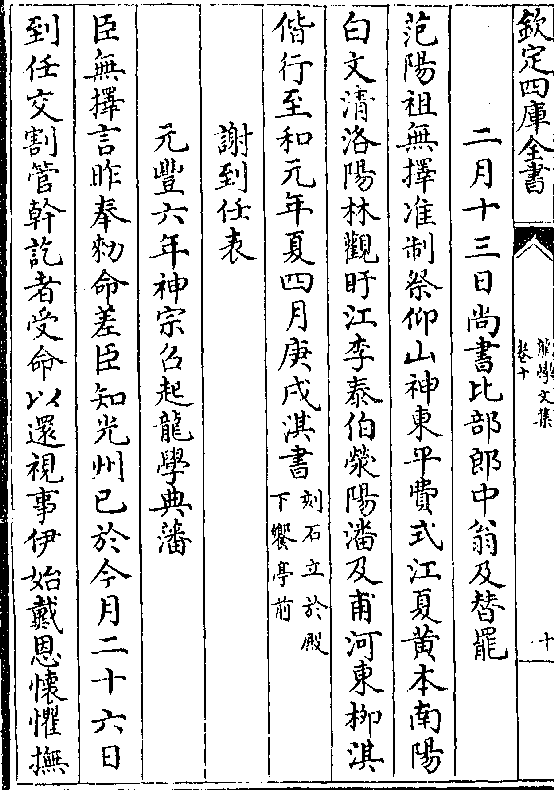 欽定四庫全書
龍學文集
卷十
十
二月十三日尚書比部郎中翁及替罷
范陽祖無擇准制祭仰山神東平費式江夏黄本南陽
白文清洛陽林觀盱江李泰伯滎陽潘及甫河東柳淇
偕行至和元年夏四月庚戌淇書刻石立於殿
下饗亭前
謝到任表
元豐六年神宗召起龍學典藩
臣無擇言昨奉勑命差臣知光州已於今月二十六日
到任交割管幹訖者受命以還視事伊始戴恩懷懼撫